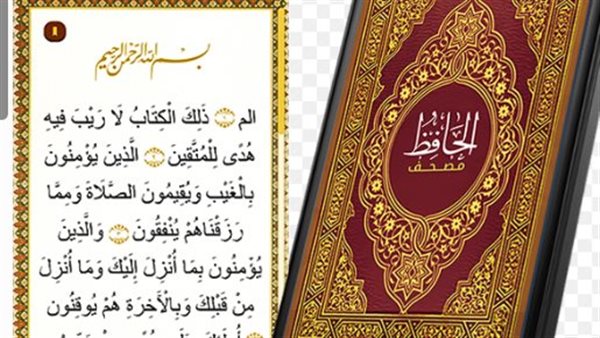 بسم الله الرحمن الرحيم
الم ۝ ذَلِكَ الْكِتَابُ لَا رَيْبَ فِيهِ
هُدًى لِلْمُتَّقِينَ ۝ الَّذِينَ يُؤْمِنُونَ
بِالْغَيْبِ وَيُقِيمُونَ الصَّلَاةَ وَمِمَّا
رَزَقْنَاهُمْ يُنْفِقُونَ ۝ وَالَّذِينَ
يُؤْمِنُونَ بِمَا أُنْزِلَ إِلَيْكَ وَمَا أُنْزِلَ
مِنْ قَبْلِكَ وَبِالْآخِرَةِ هُمْ يُوقِنُونَ
الحافظ
مصحف